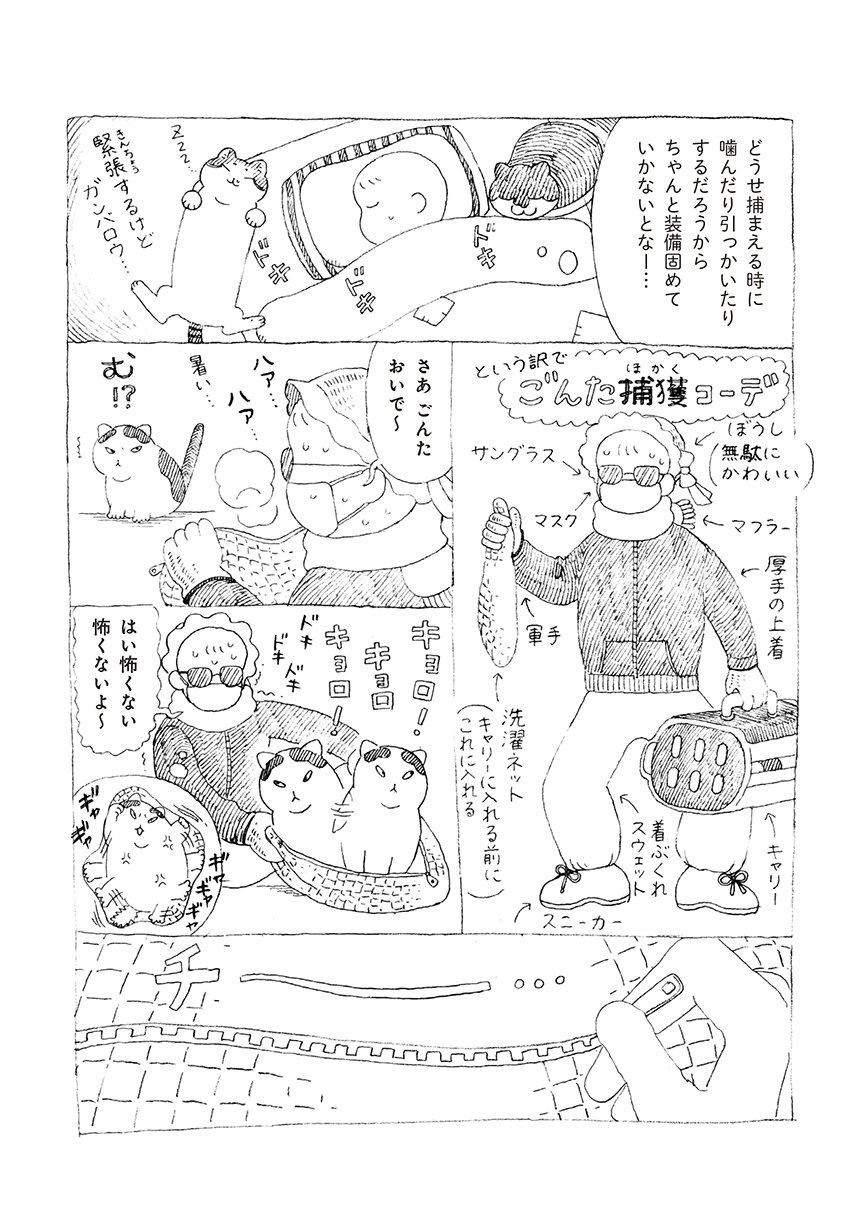 どうせ捕まえる時に
噛んだり引っかいたり
するだろうから
ちゃんと装備固めて
いかないとなー…
ドキ
ドキ
ドキ
zzz…
きんちょう
緊張するけど
ガンバロウ…
という訳で
ほかく
ごんた捕獲コーデ
ぼうし
(無駄に
かわいい)
サングラス
マスク
マフラー
厚手の上着
軍手
洗濯ネット
(キャリーに入れる前に
これに入れる)
着ぶくれ
スウェット
キャリー
スニーカー
さあ ごんた
おいで〜
ハァ…
ハァ…
暑い…
む!?
キョロ!
キョロ
キョロ!
ドキ
ドキ
ドキ
はい怖くない
怖くないよ〜
ギャ
ギャ
ギャ
ギャ
ギャ
チー…